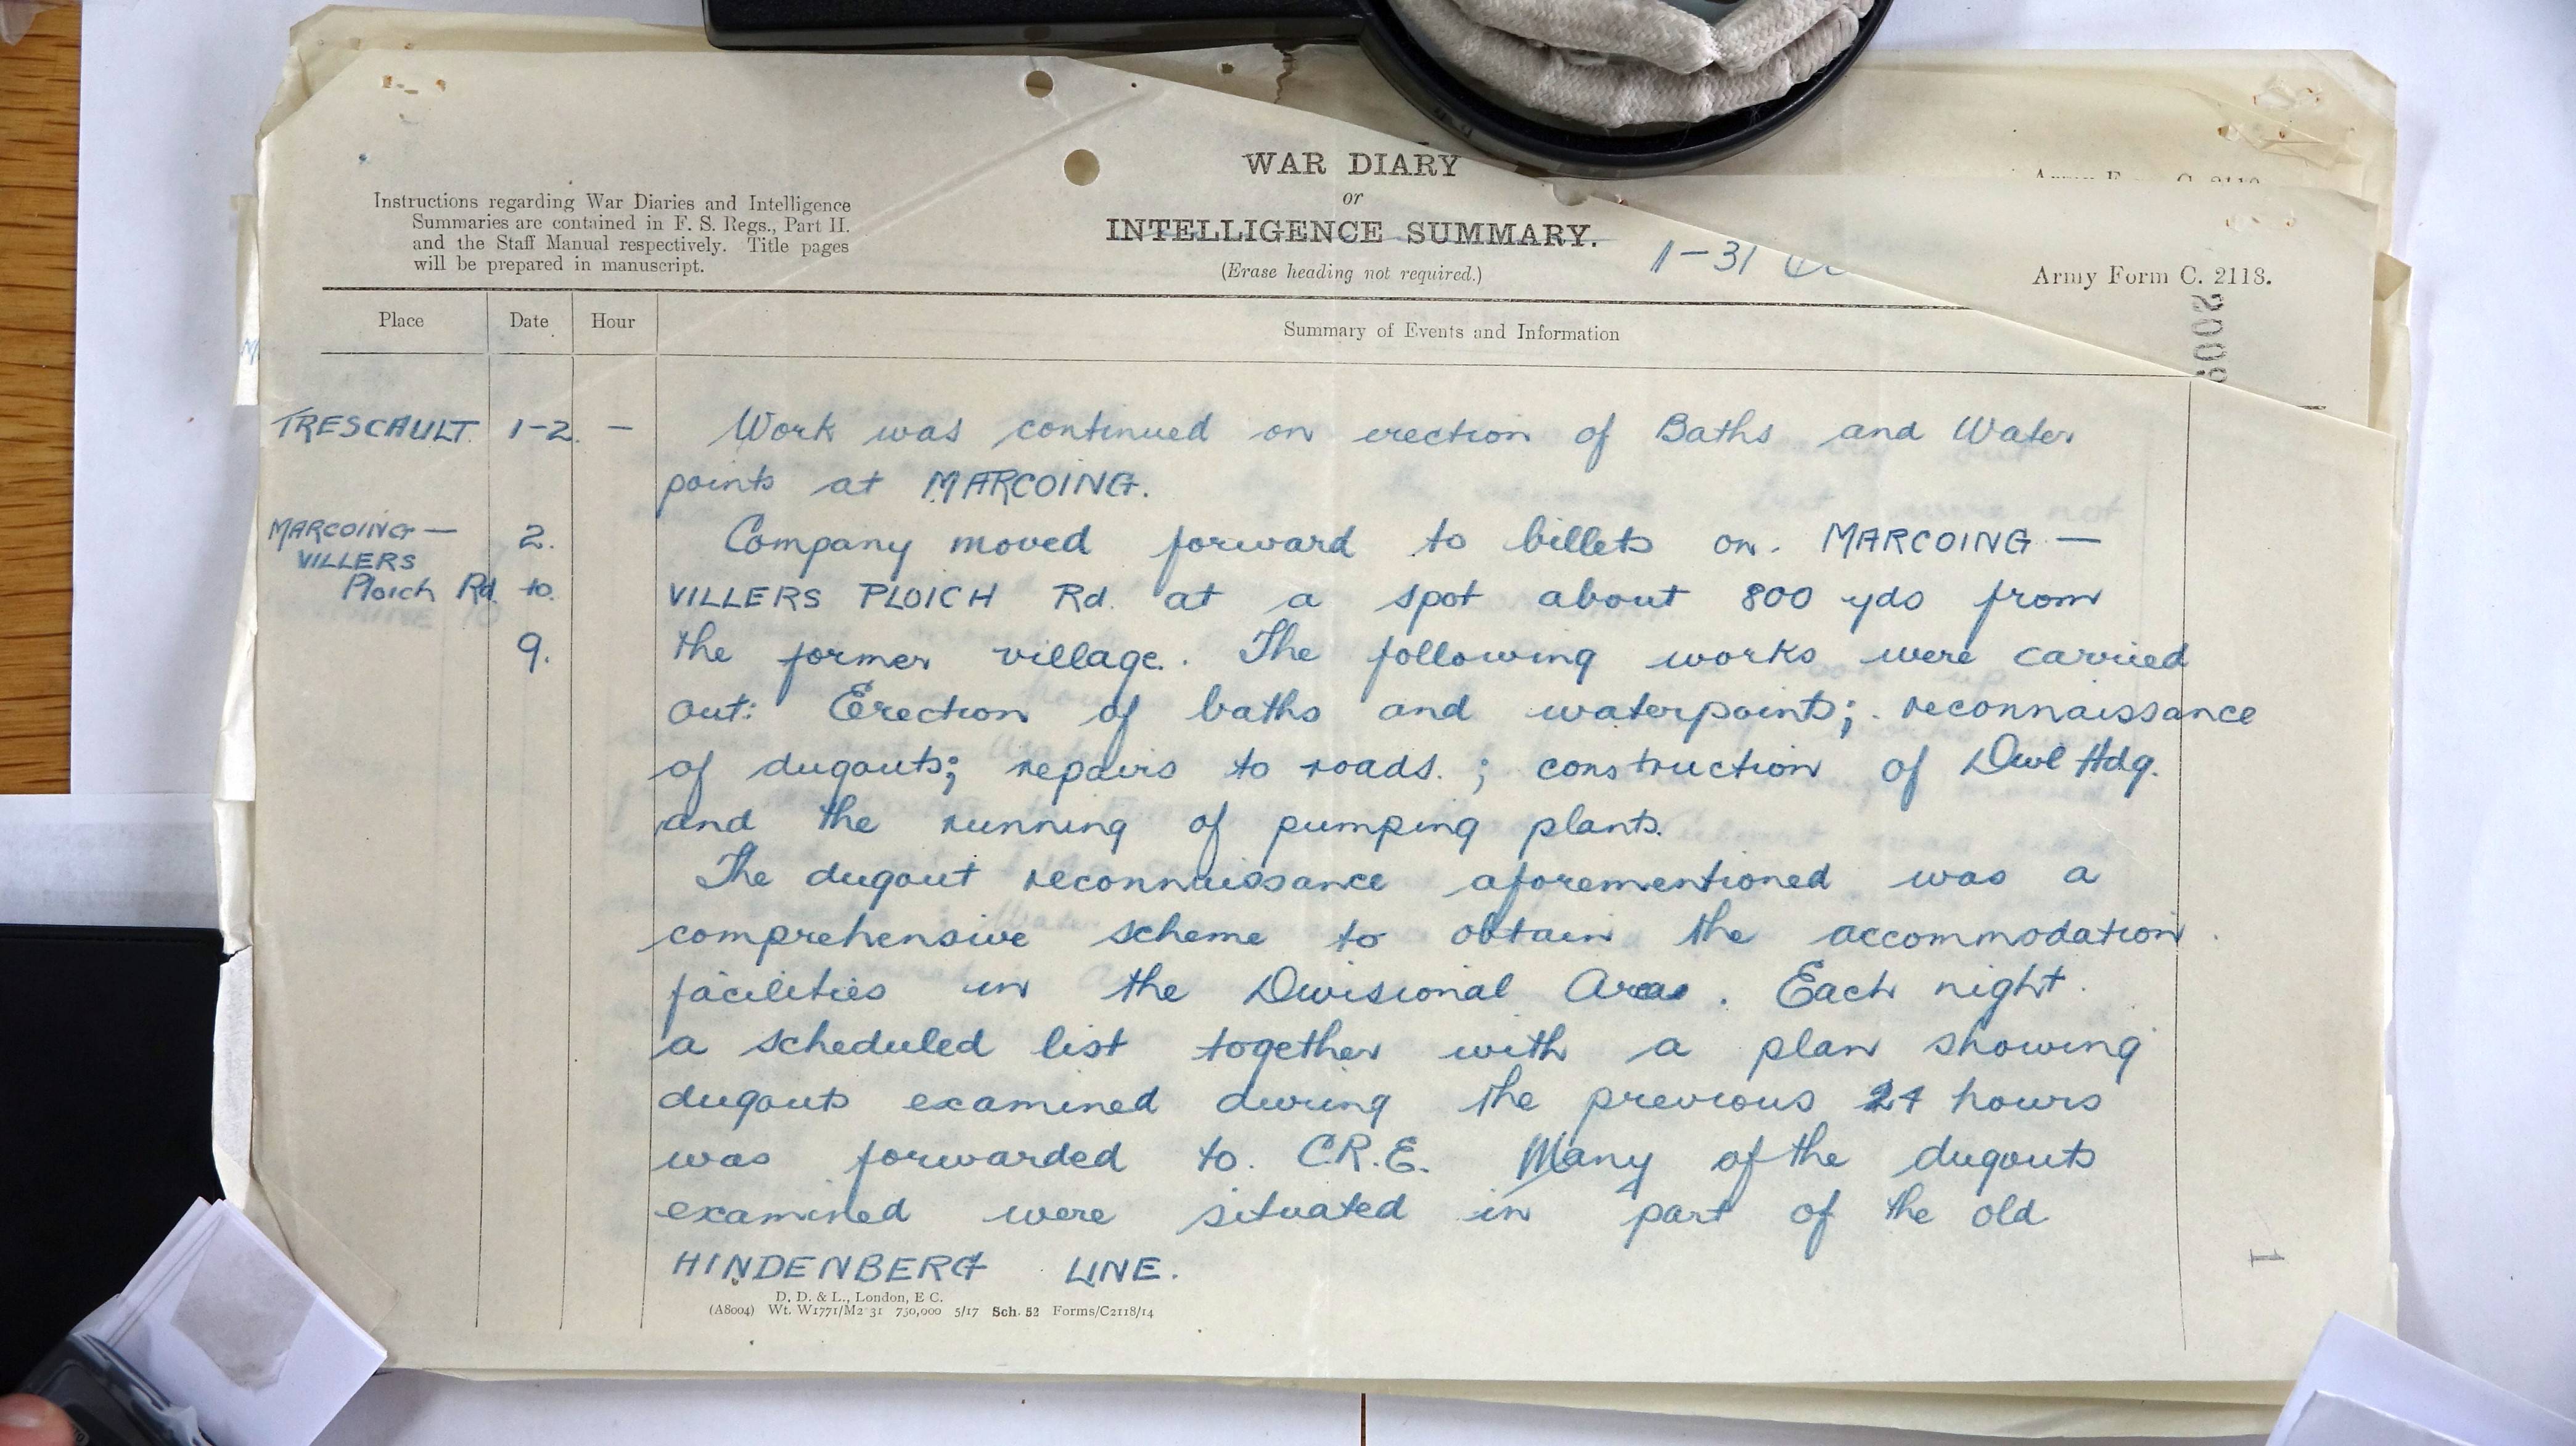 WAR DIARY
or
INTELLIGENCE SUMMARY.
(Erase heading not required.)
Instructions regarding War Diaries and Intelligence
Summaries are contained in F. S. Regs., Part II.
and the Staff Manual respectively. Title pages
will be prepared in manuscript.
1-31
Army Form C. 2118.
2009
Place Date Hour Summary of Events and Information
TRESCAULT. 1-2. — Work was continued on erection of Baths and Water
points at MARCOING.
MARCOING — 2. Company moved forward to billets on. MARCOING —
VILLERS
Ploich Rd. to. VILLERS PLOICH Rd. at a spot about 800 yds from
9. the former village. The following works were carried
out: Erection of baths and waterpoints; reconnaissance
of dugouts; repairs to roads. ; construction of Divl Hdq.
and the running of pumping plants.
The dugout reconnaissance aforementioned was a
comprehensive scheme to obtain the accommodation
facilities in the Divisional Area. Each night.
a scheduled list together with a plan showing
dugouts examined during the previous 24 hours
was forwarded to. C.R.E. Many of the dugouts
examined were situated in part of the old
HINDENBERG LINE.
D. D. & L., London, E C.
(A8004) Wt. W1771/M2 31 750,000 5/17 Sch. 52 Forms/C2118/14
1